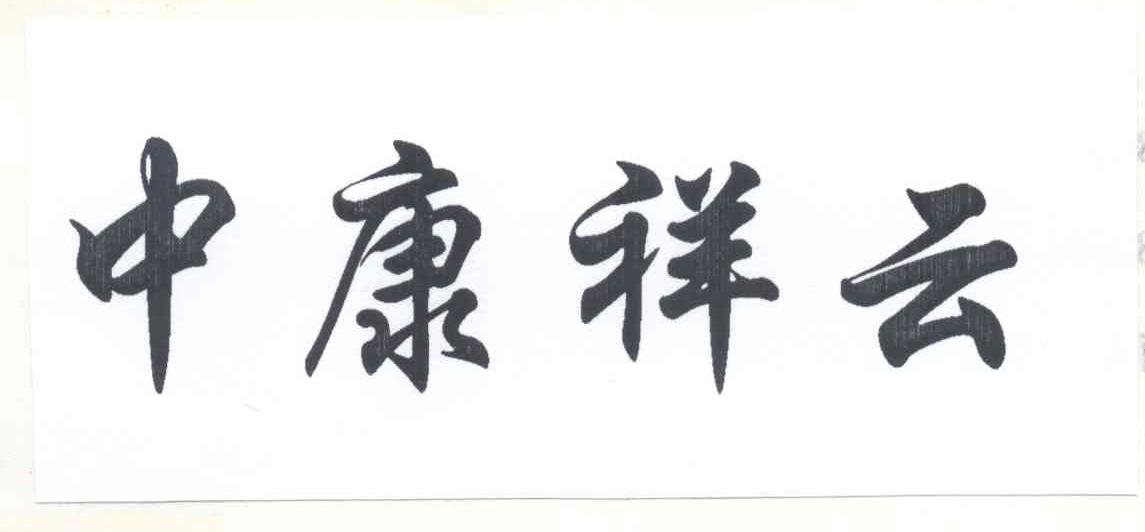 中康祥云